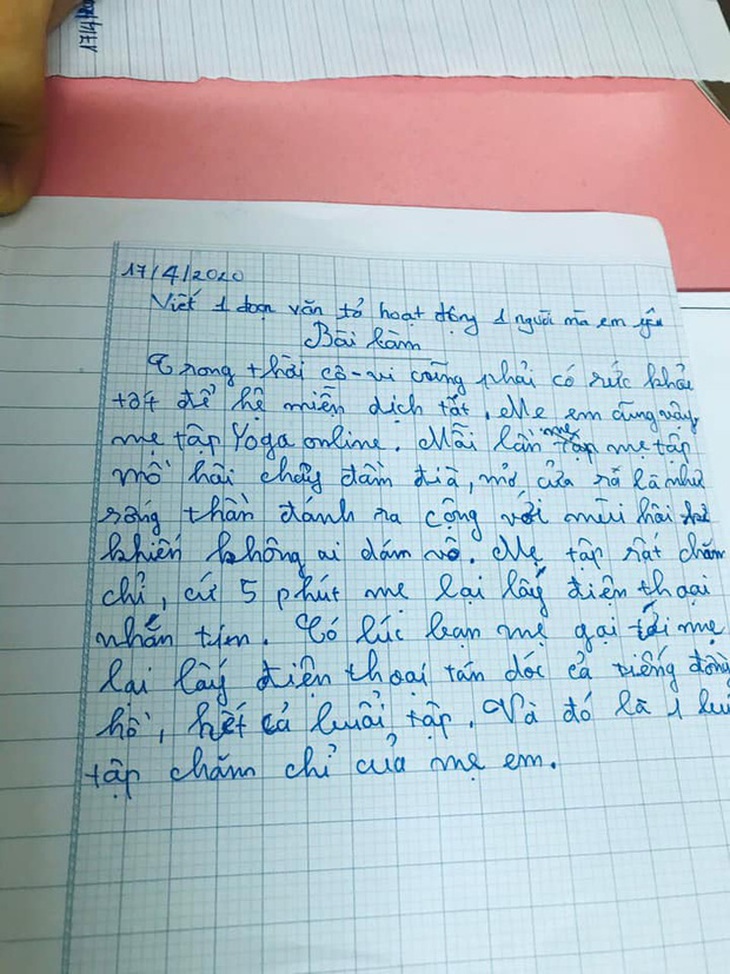 17/4
17/4/2020
Viết 1 đoạn văn tả hoạt động 1 người mà em yêu
Bài làm
Trong thời cô-vi cũng phải có sức khỏe
tốt để hệ miễn dịch tốt. Mẹ em cũng vậy
mẹ tập Yoga online. Mỗi lần mẹ tập
mồ hôi chảy đầm đìa, mở cửa ra là như
sóng thần đánh ra cộng với mùi hôi
khiến không ai dám vô. Mẹ tập rất chăm
chỉ, cứ 5 phút mẹ lại lấy điện thoại
nhắn tin. Có lúc bạn mẹ gọi tới mẹ
lại lấy điện thoại tán dóc cả tiếng đồng
hồ, hết cả buổi tập. Và đó là 1 bu
tập chăm chỉ của mẹ em.